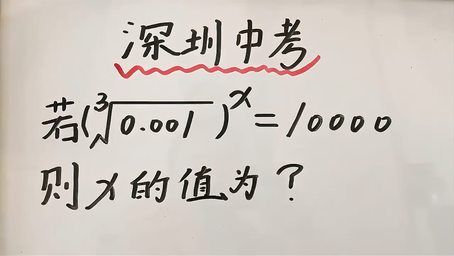 深圳中考
若(∛0.001)ˣ=10000
则x的值为？